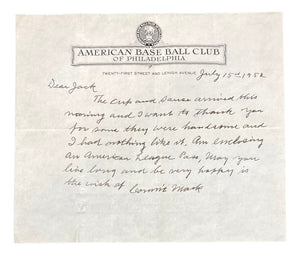 AMERICAN BASE BALL CLUB
OF PHILADELPHIA
TWENTY-FIRST STREET AND LEHIGH AVENUE
July 15th 1952
Dear Jack
The Cup and Sauser arrived this
morning and I want to thank you
for same they were handsome and
I had nothing like it. Am enclosing
an American League Pass. May you
live long and be very happy is
the wish of Connie Mack